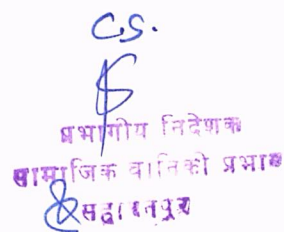 C.S.
प्रभागीय निदेशक
सामाजिक वानिकी प्रभाग
सहारनपुर